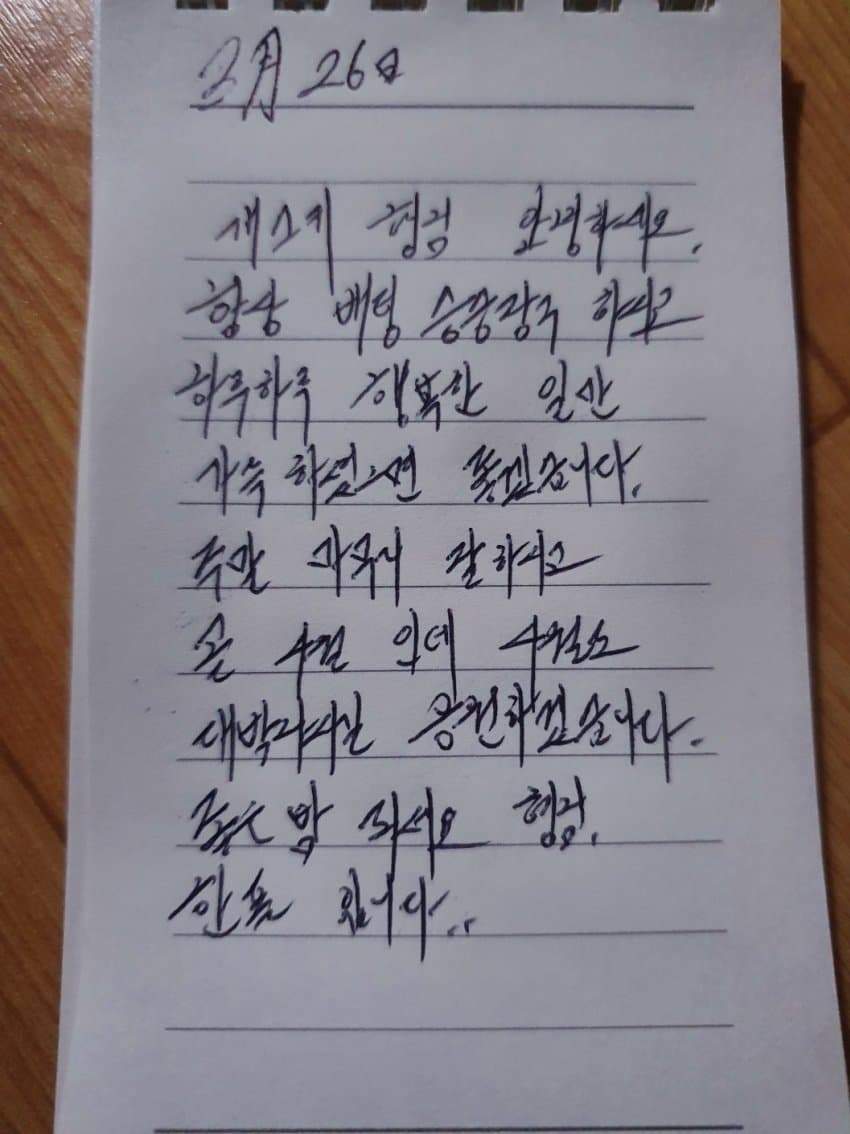 2月 26日
새스키 형님 안녕하세요.
항상 배팅 승승장구 하시고
하루하루 행복한 일만
가득 하였으면 좋겠습니다.
주말 마무리 잘하시고
곧 4월 인데 4월도
대박나시길 응원하겠습니다.
좋은 밤 되세요 형님.
한솔 입니다..